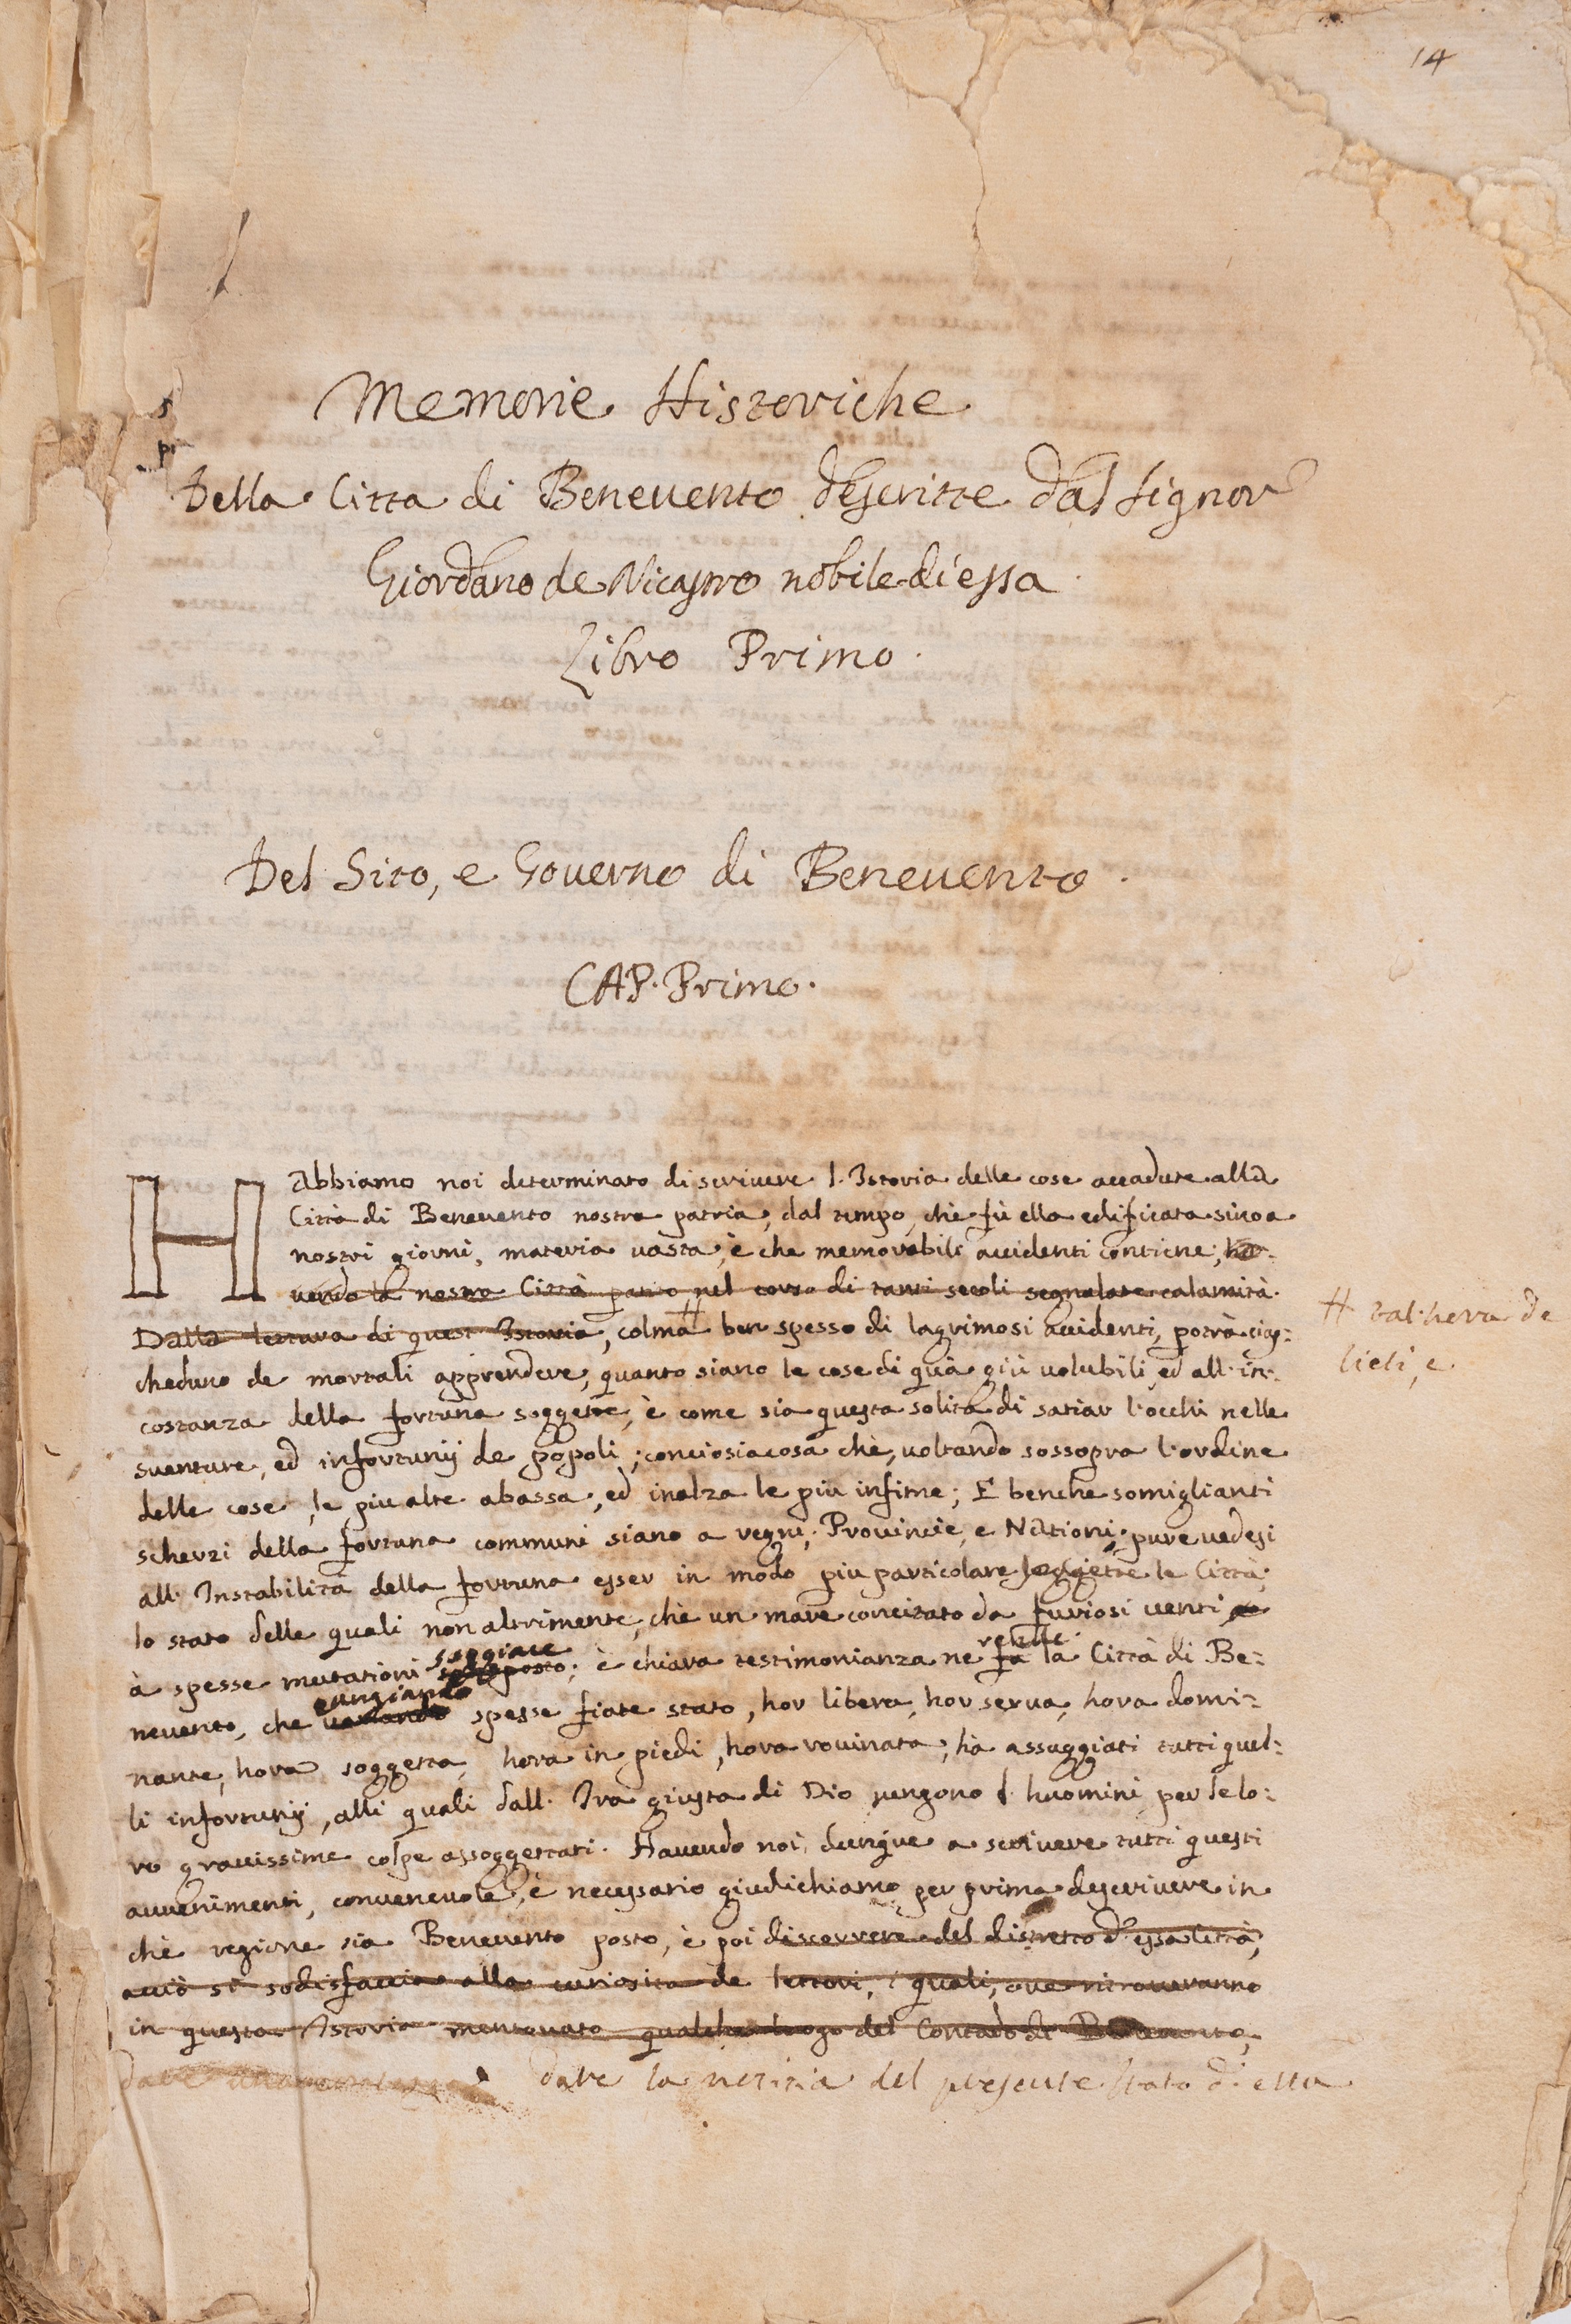 14
Memorie Historiche
Della Citta di Beneuento descritte dal Signor
Giordano de Nicastro nobile di essa
Libro Primo.
Del Sito, e Gouerno di Beneuento.
CAP. Primo.
HAbbiamo noi determinato di scriuere l'Istoria delle cose accadute alla
Città di Beneuento nostra patria, dal tempo, chè fù ella edificata sino a
nostri giorni, materia uasta, è che memorabili accidenti contiene, ha-
uendo la nostra Città patito nel corso di tanti secoli segnalate calamità.
Dalla lettura di quest'Istoria, colma # ben spesso di lagrimosi accidenti, potrà cias-
# tal'hora de
lieti, e
cheduno de mortali apprendere, quanto siano le cose di quà giù uolubili, ed all'in-
costanza della fortuna soggette, è come sia questa solita di satiar l'occhi nelle
suenture, ed infortunij de popoli; conciosiacosa chè, uoltando sossopra l'ordine
delle cose, le piu alte abassa, ed inalza le più infime; E benche somiglianti
scherzi della fortuna communi siano a regni, Prouincie, e Nationi, pure uedesi
all'Instabilità della fortuna esser in modo piu particolare soggette le Città;
lo stato delle quali non altrimente, chè un mare concitato da furiosi uenti
soggiace
à spesse mutationi sottoposto; è chiara testimonianza ne fa la Città di Be-
rende
cangiando
neuento, che uariando spesse fiate stato, hor libera, hor serua, hora domi-
nante, hora soggetta, hora in piedi, hora rouinata, hà assaggiati tutti quel-
li infortunij, alli quali dall'Ira giusta di Dio uengono l'huomini per le lo-
ro grauissime colpe assoggettati. Hauendo noi dunque a scriuere tutti questi
auuenimenti, conueneuole, è necessario giudichiamo per prima descriuere in
chè regione sia Beneuento posto, è poi discorrere del distretto d'essa Città,
acciò si sodisfaccia alla curiosita de lettori, i quali, oue ritroueranno
in questa Istoria mentouato qualche luogo del Contado di Beneuento,
dare la notitia del presente stato di essa